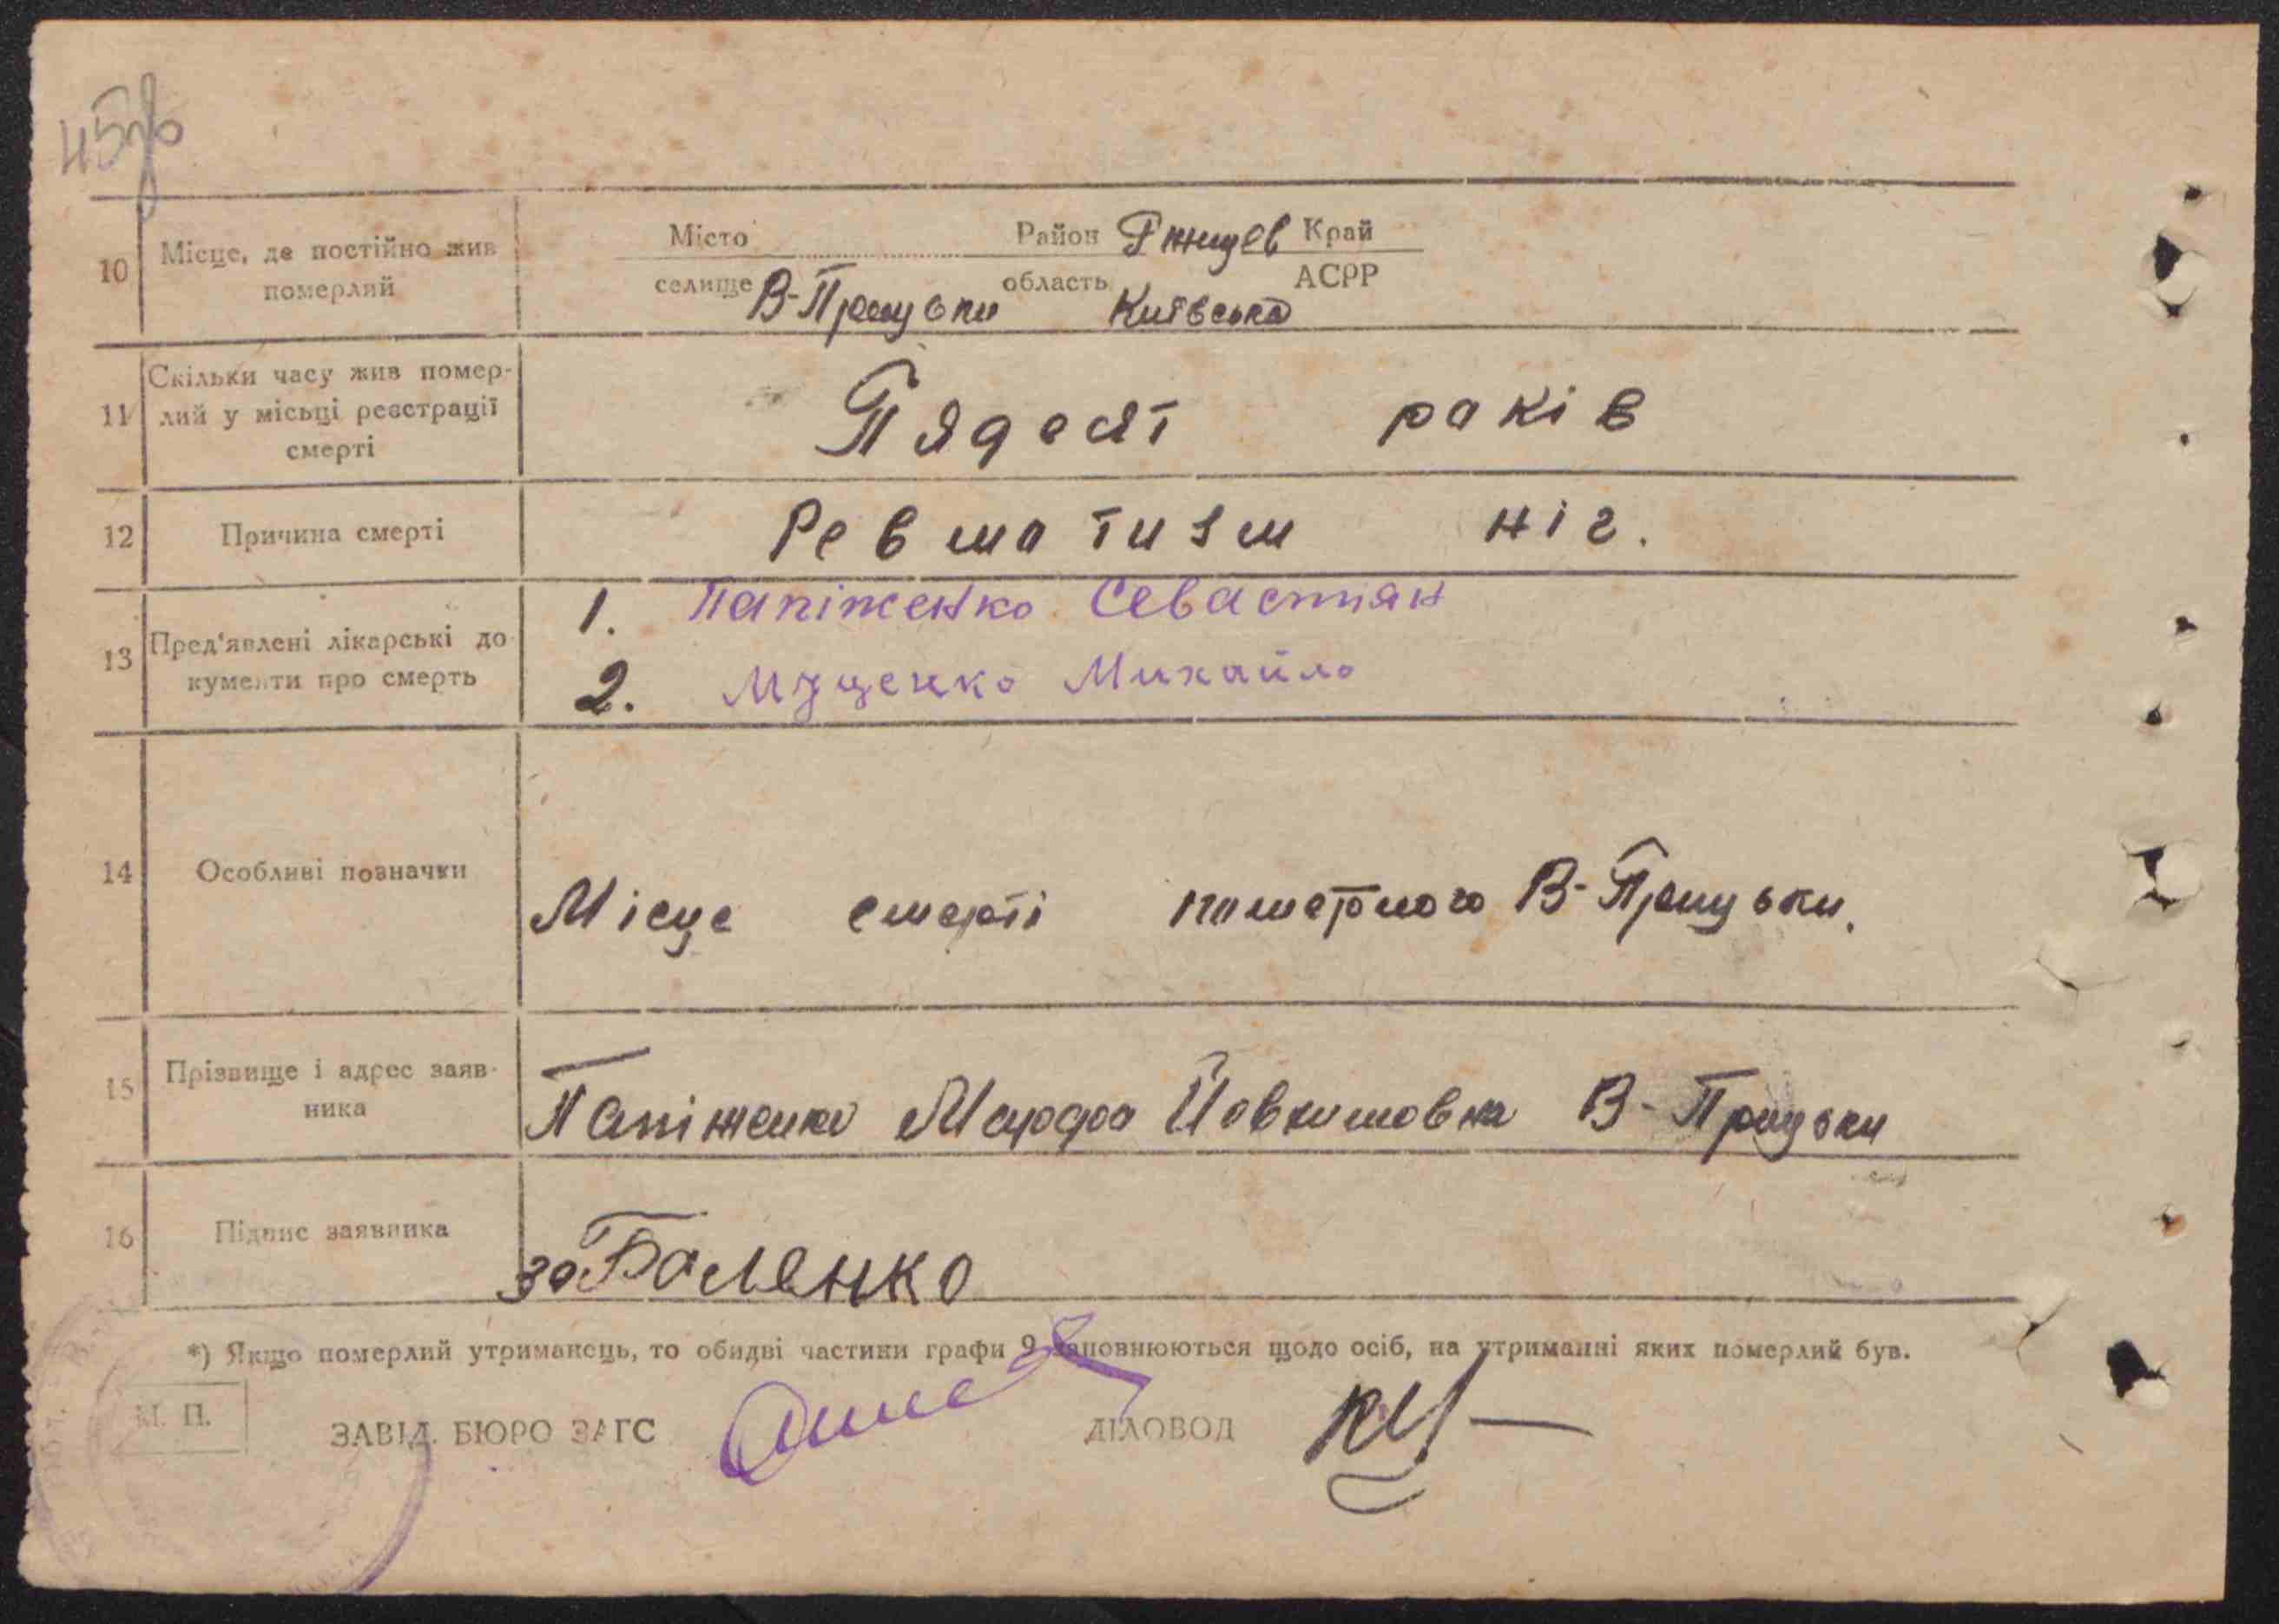 45
10 Місце, де постійно жив померлий
Місто Район Ржищев Край
селище В-Прицьки область Київська АСРР
11 Скільки часу жив помер-
лий у місьці реєстрації
смерті
Пядесят раків
12 Причина смерті Ревматизм ніг.
13 Пред'явлені лікарські до
кументи про смерть
1. Папіженко Севастіян
2. Муценко Михайло
14 Особливі позначки
Місце смерті памерлого В-Прицьки.
15 Прізвище і адрес заяв-
ника
Папіженко Марфа Йовхимовна В-Прицьки
16 Підпис заявника
за Баленко
*) Якщо померлий утриманець, то обидві частини графи 9 заповнюються щодо осіб, на утриманні яких померлий був.
М. П.
ЗАВІД. БЮРО ЗАГС ДІЛОВОД